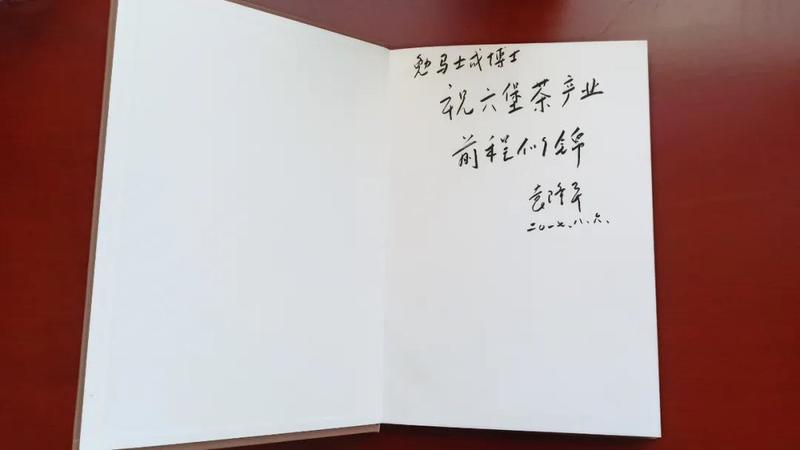 勉马士成博士
祝六堡茶产业
前程似锦
袁隆平
二〇一七、八、六、